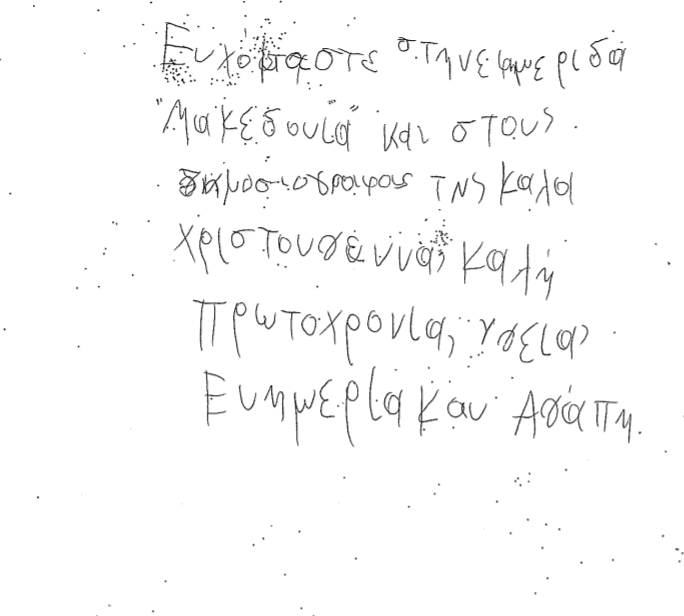 Ευχόμαστε στην εφημερίδα
"Μακεδονία" και στους
δημοσιογράφους της καλά
χριστουγεννα, καλή
πρωτοχρονιά, υγεία,
Ευημερία και Αγάπη.